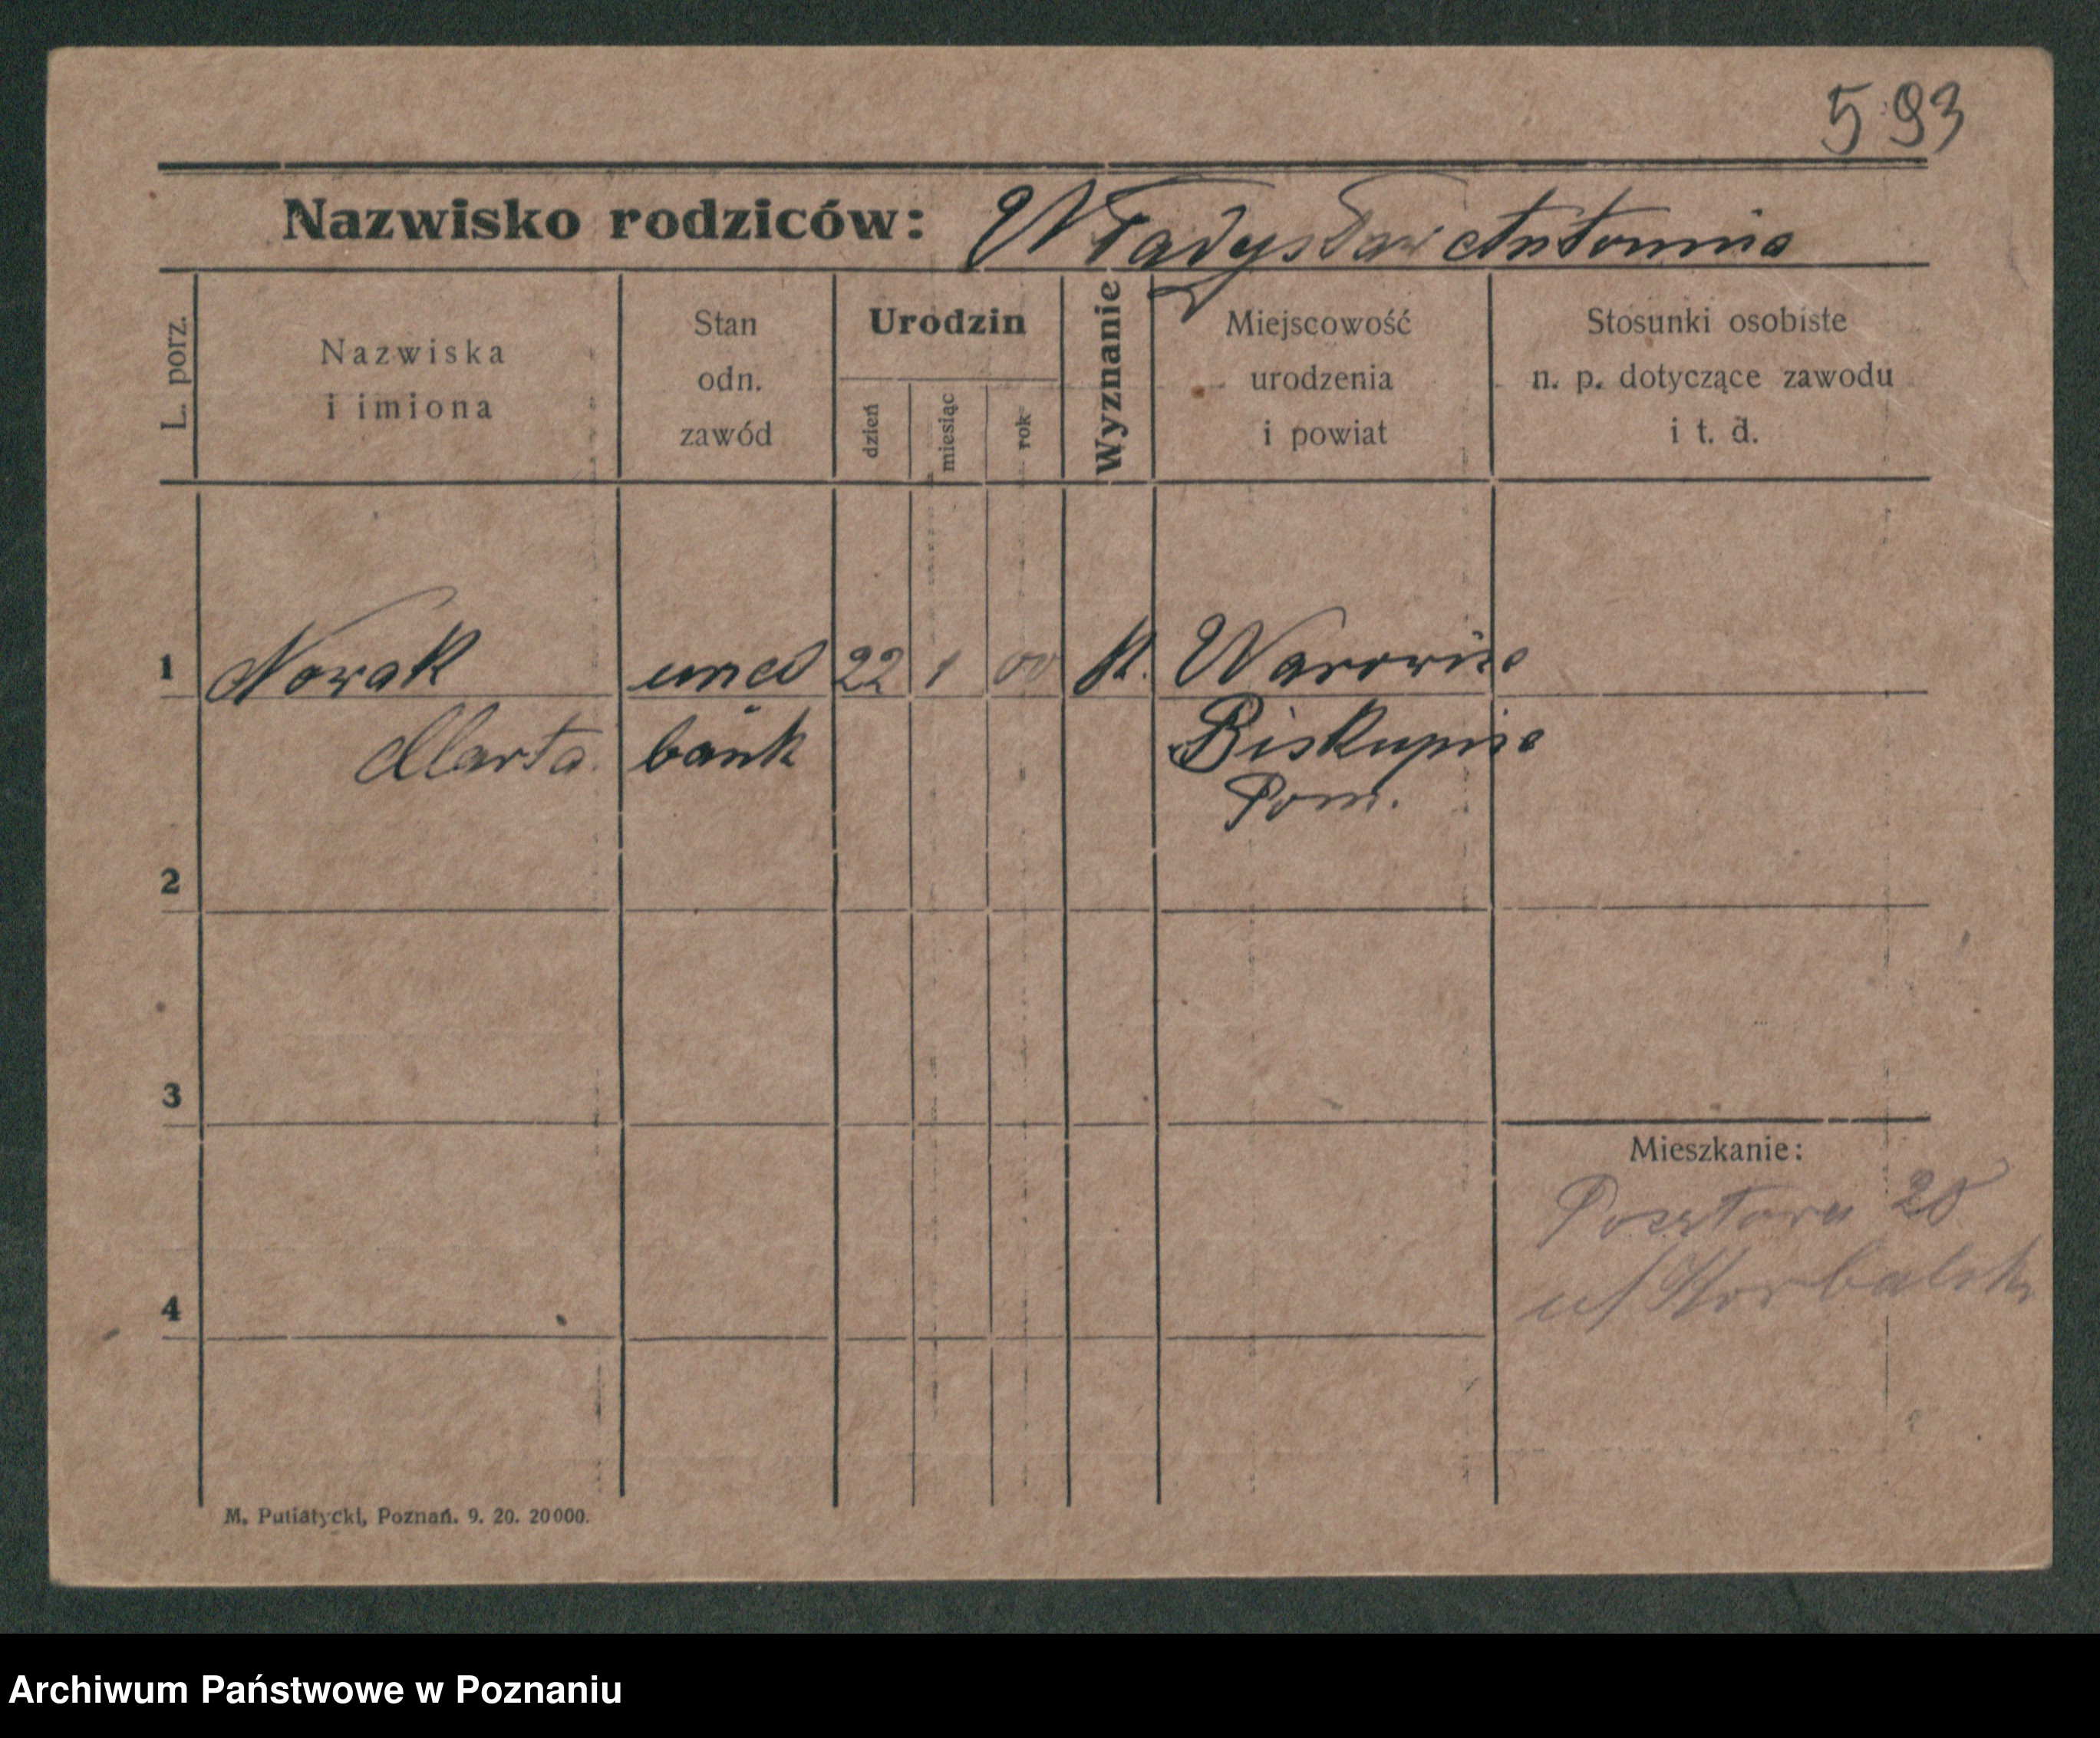 593
Nazwisko rodziców: Władysław Antonina
L. porz.
Nazwiska
i imiona
Stan
odn.
zawód
Urodzin
dzień
miesiąc
rok
Wyznanie
Miejscowość
urodzenia
i powiat
Stosunki osobiste
n. p. dotyczące zawodu
i t. d.
1 Nowak 22 1 00 k.
Marta bank Biskupice
Pom.
2
3
Mieszkanie:
4
M. Putiatycki, Poznań. 9. 20. 20000.
Archiwum Państwowe w Poznaniu